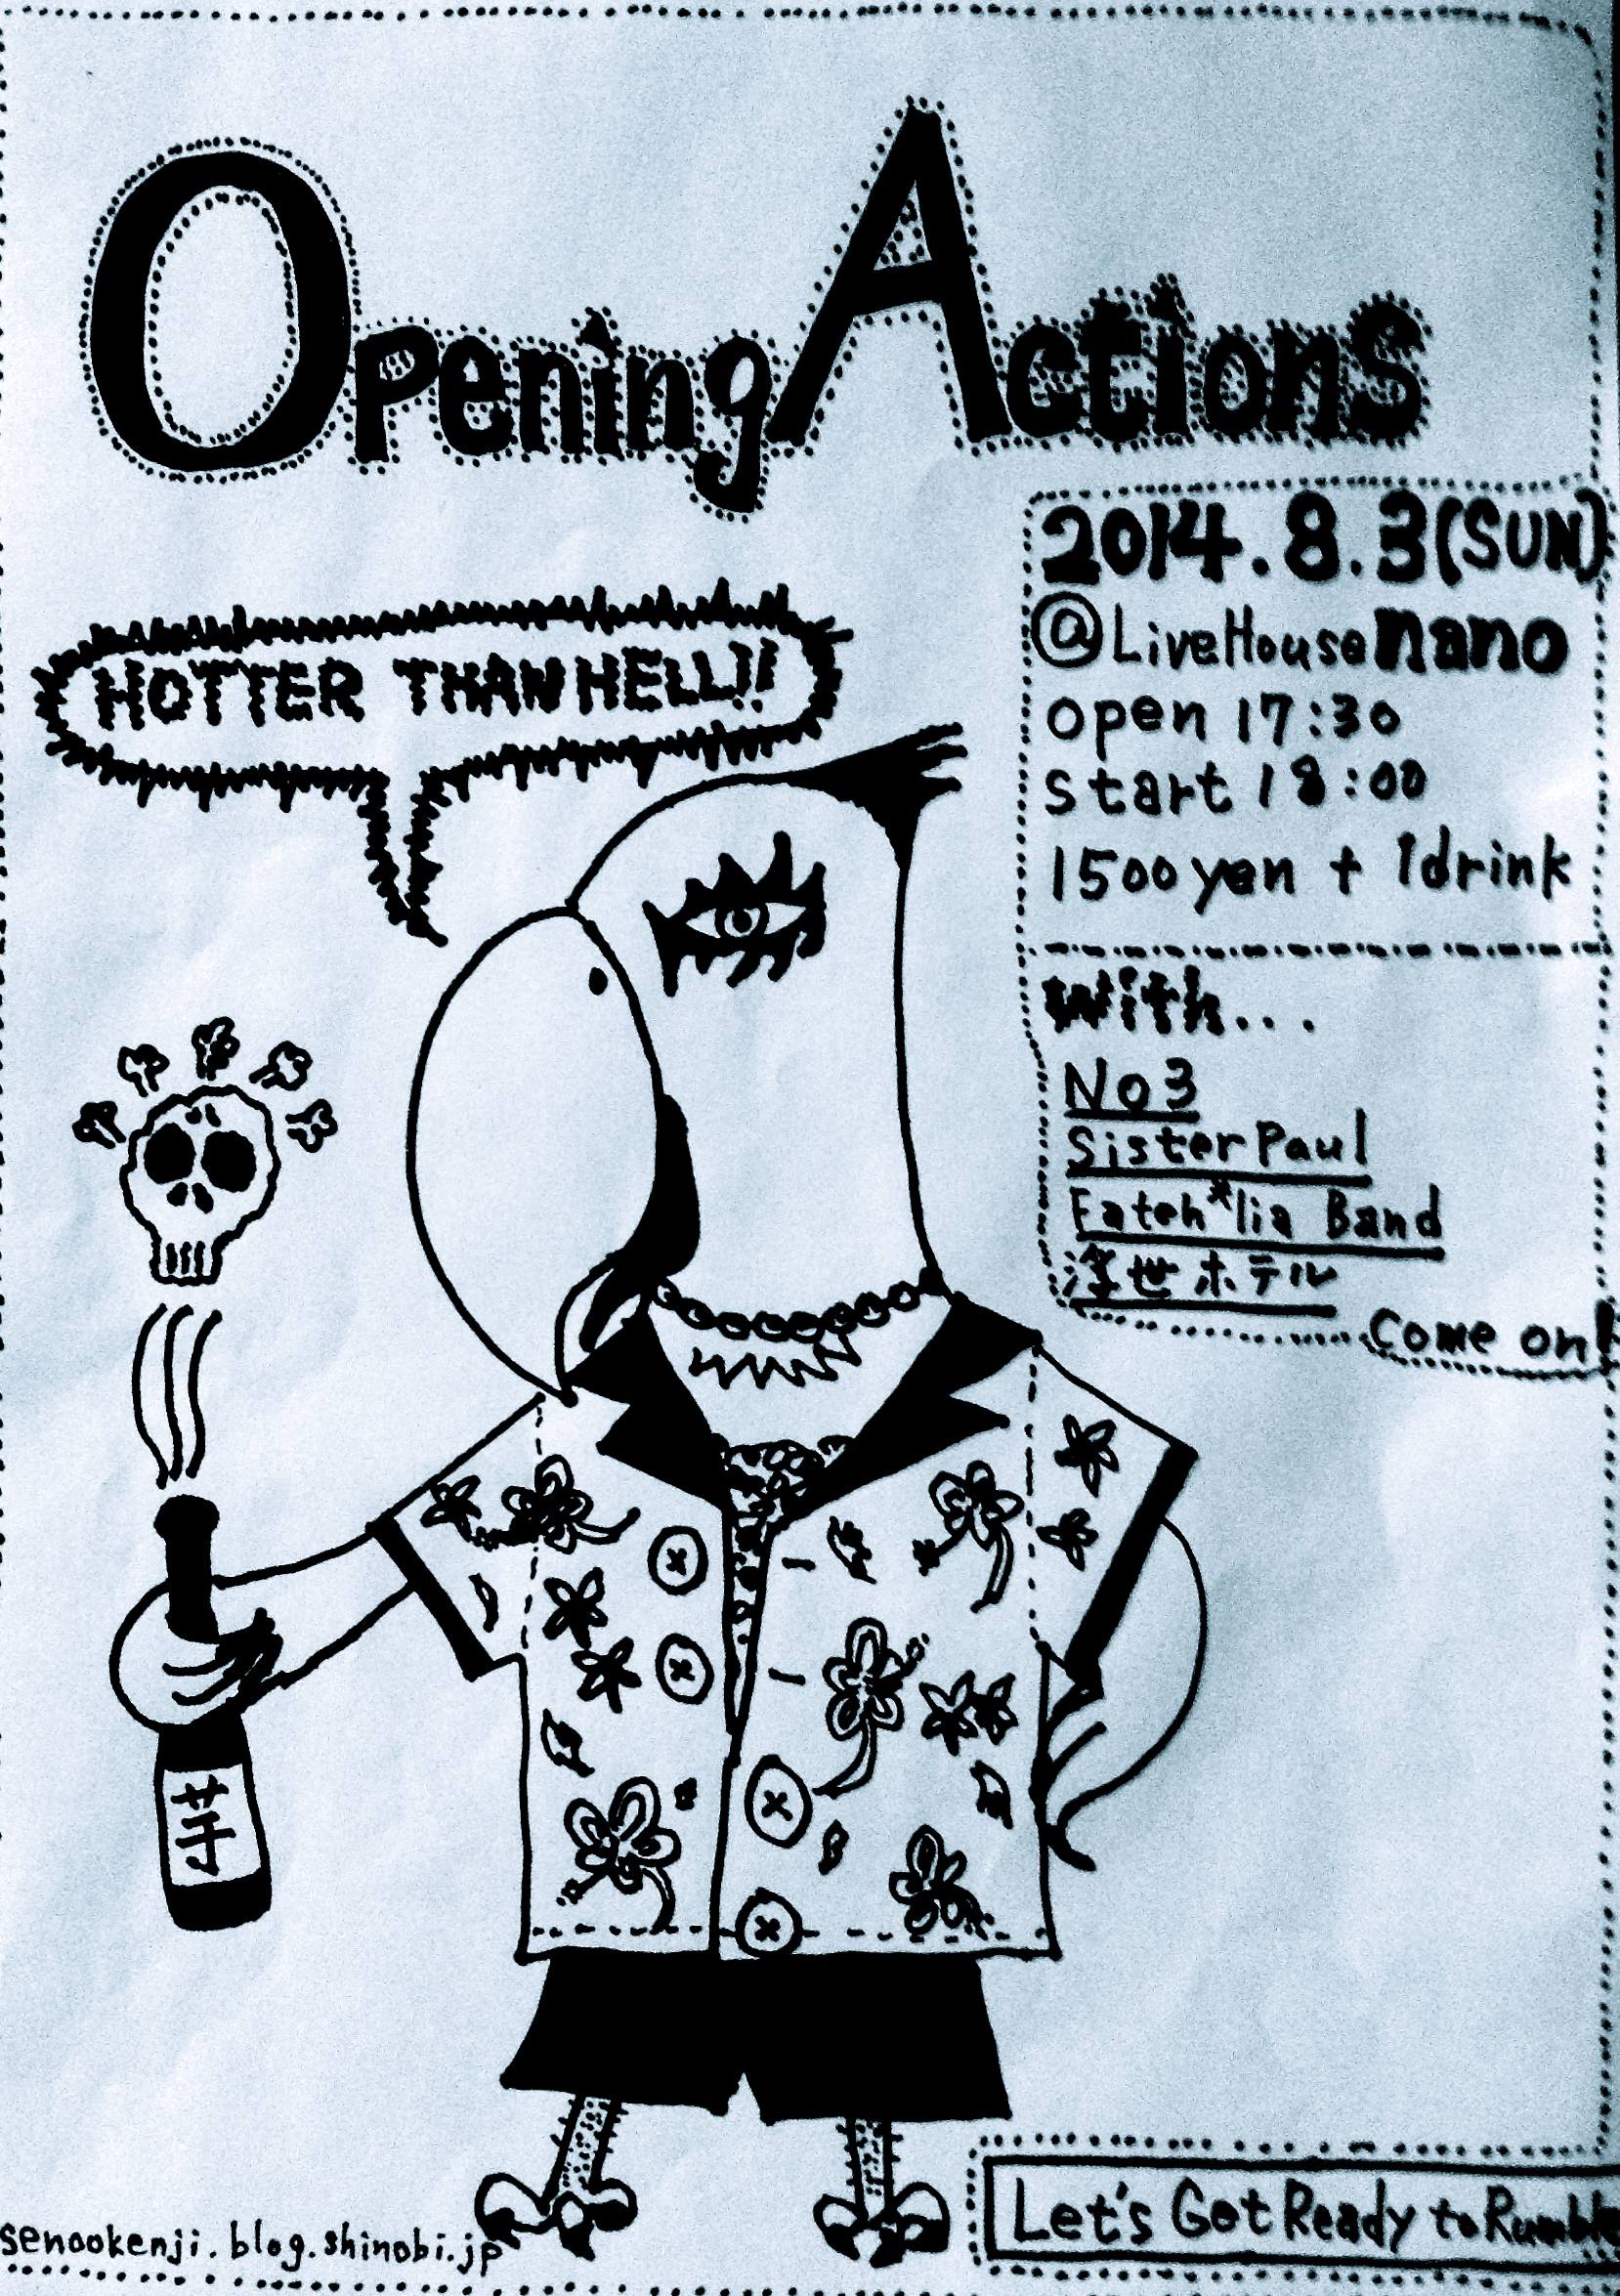 Opening Actions
2014.8.3(SUN)
@LiveHouse nano
open 17:30
start 18:00
1500 yen + 1drink
HOTTER THAN HELL!!
with...
No3
Sister Paul
Eateh*lia Band
浮世ホテル
Come on!
芋
senookenji.blog.shinobi.jp
Let's Get Ready to Rumble